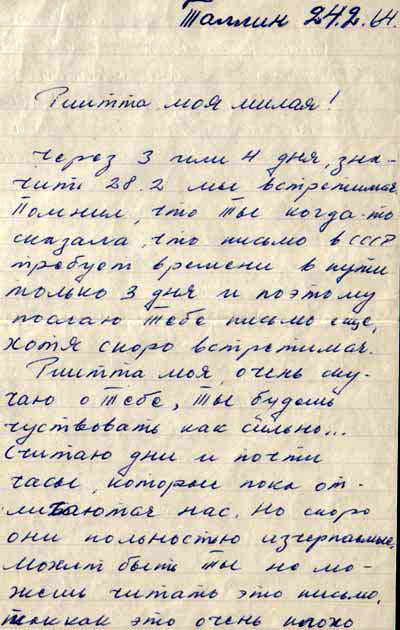 Таллин 24.2.64.
Риитта моя милая!
Через 3 или 4 дня, зна-
чить 28.2 мы встретимся.
Помнил, что Ты когда-то
сказала, что письмо в СССР
требует времени в пути
только 3 дня и поэтому
послаю Тебе письмо еще,
хотя скоро встретимся.
Риитта моя, очень ску-
чаю о Тебе, Ты будешь
чуствовать как сильно...
Считаю дни и почти
часы, которые пока от-
личаются нас. Но скоро
они полностью
Может быть Ты не мо-
жешь читать это письмо,
так как это очень плохо